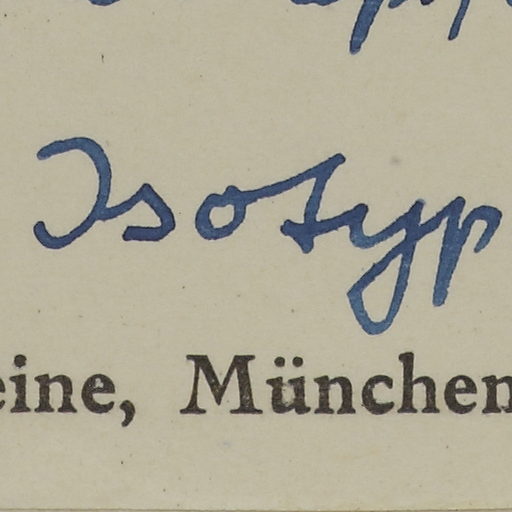 Isotyp
eine, München